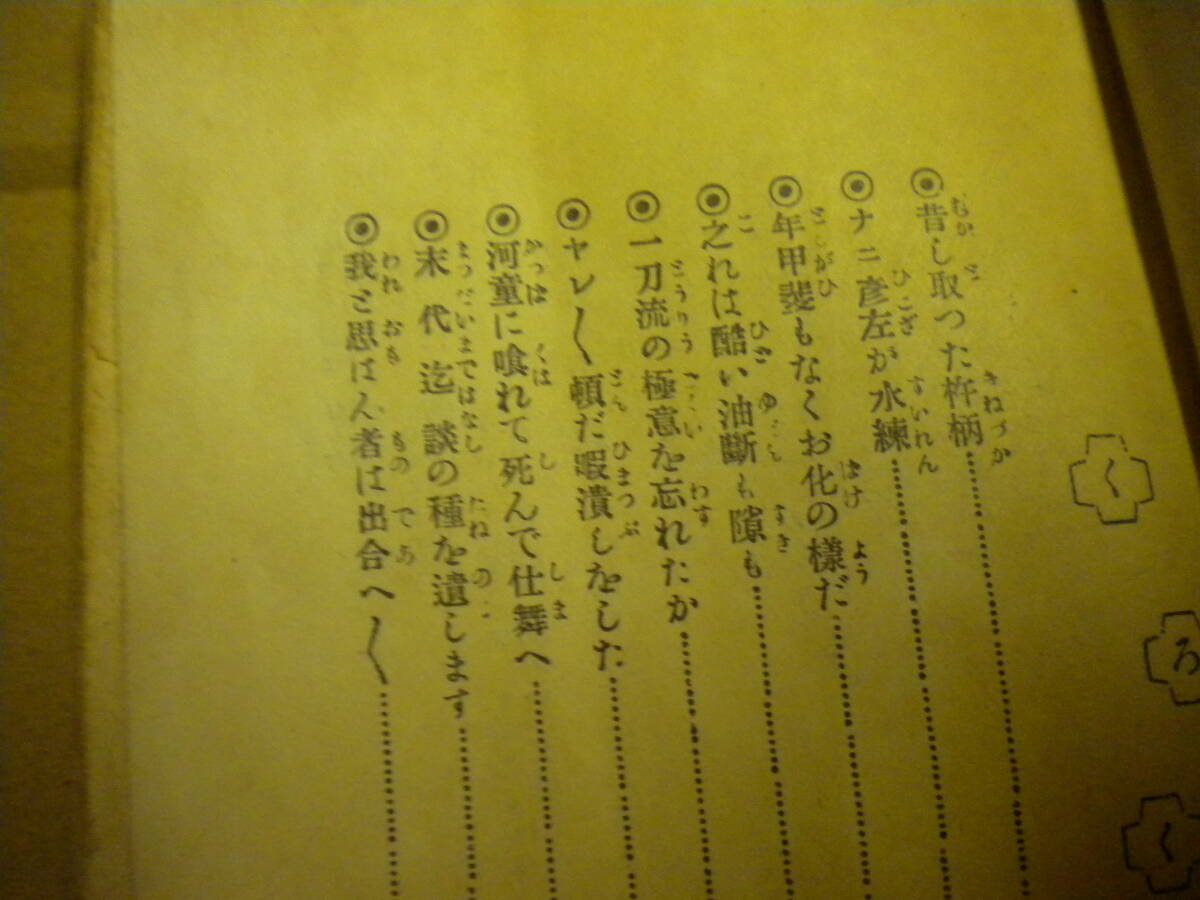 ◉昔し取つた杵柄
◉ナニ彥左が水練
◉年甲斐もなくお化の樣だ
◉之れは酷い油斷も隙も
◉一刀流の極意を忘れたか
◉ヤレ〱頓だ暇潰しをした
◉河童に喰れて死んで仕舞へ
◉末代迄談の種を遺します
◉我と思はん者は出合へ〱
く
ろ
く